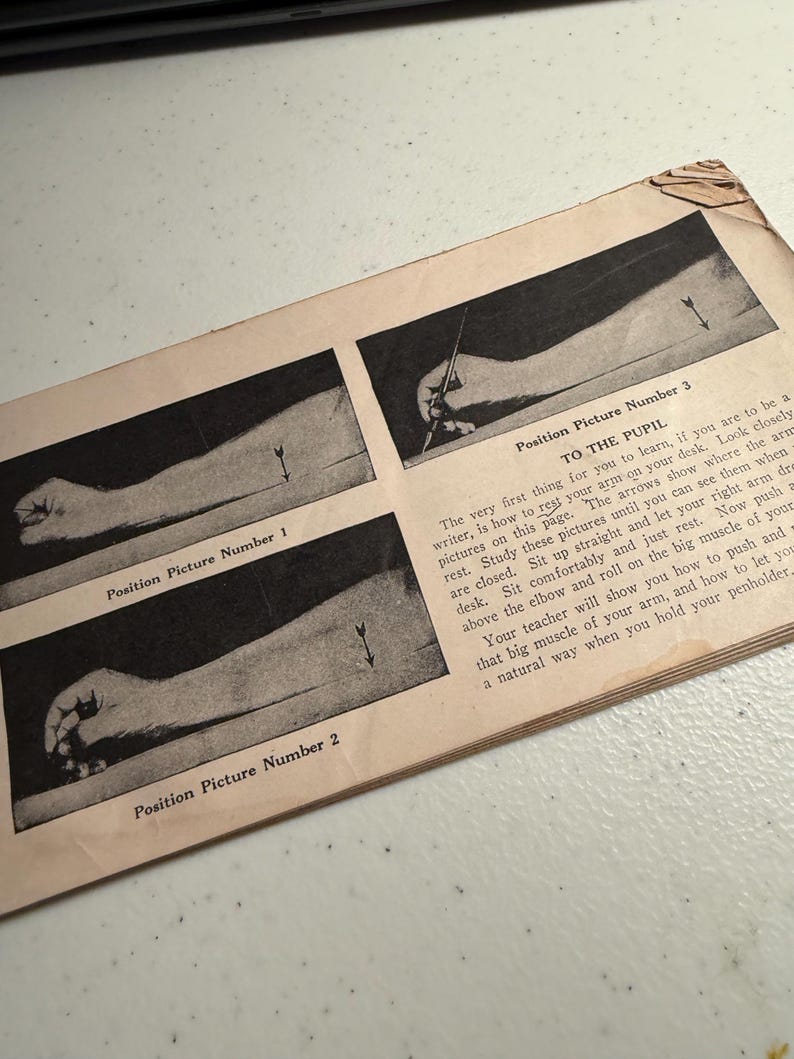 Position Picture Number 1
Position Picture Number 2
Position Picture Number 3
TO THE PUPIL
The very first thing for you to learn, if you are to be a
writer, is how to rest your arm on your desk. Look closely
pictures on this page. The arrows show where the arm
rest. Study these pictures until you can see them when
are closed. Sit up straight and let your right arm
desk. Sit comfortably and just rest. Now push
above the elbow and roll on the big muscle of your
Your teacher will show you how to push and
that big muscle of your arm, and how to let
a natural way when you hold your penholder.